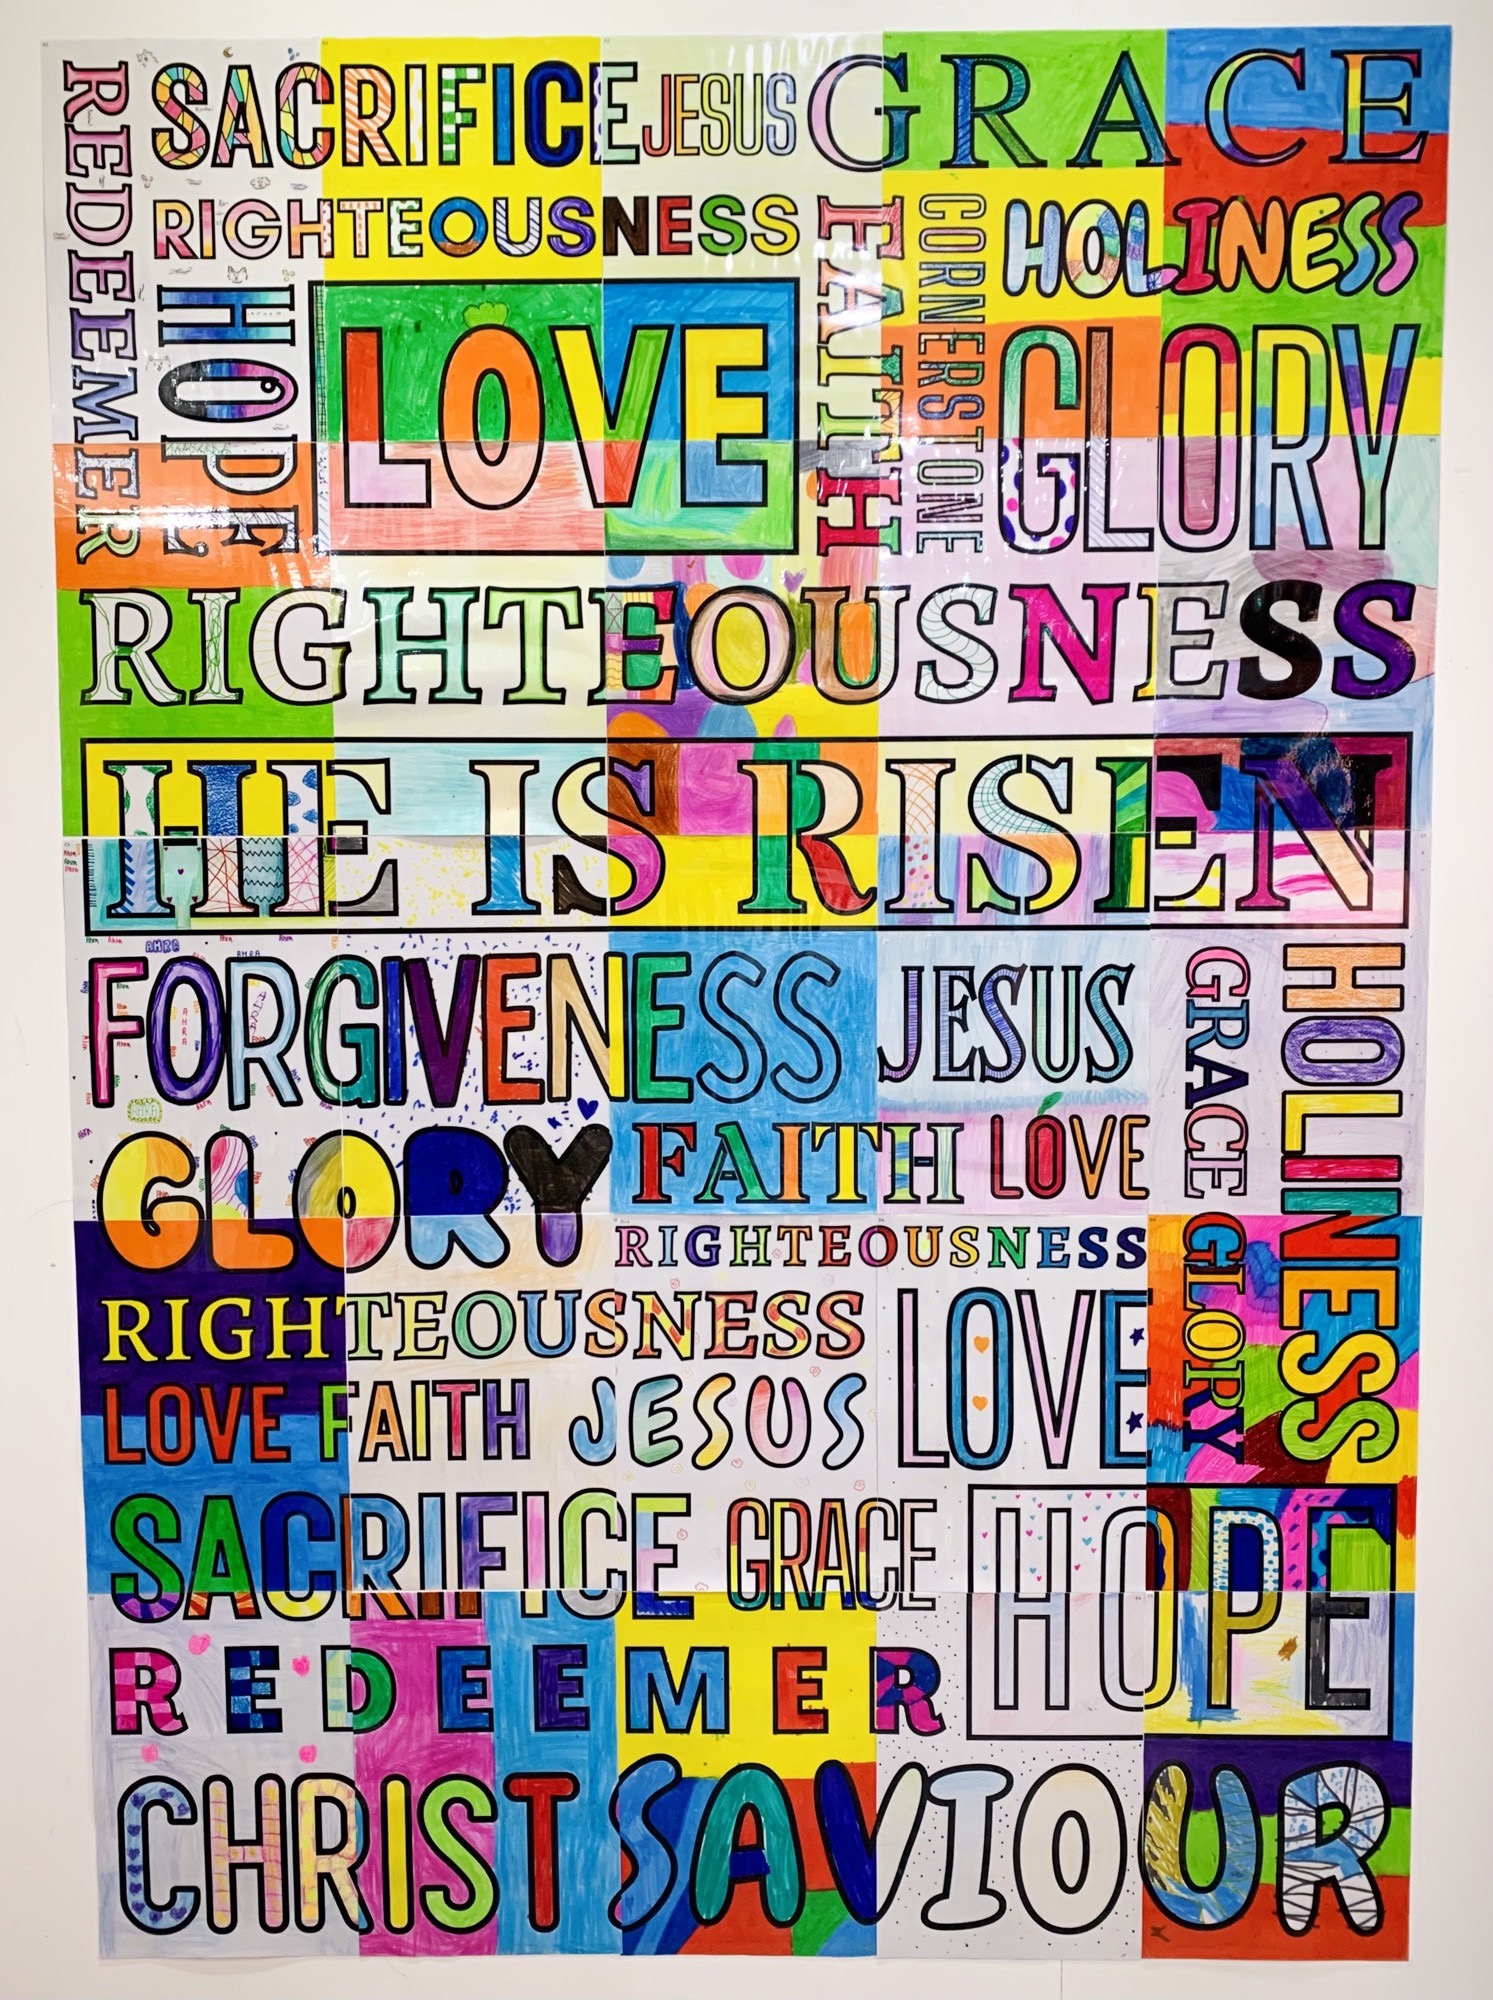 REDEEMER
SACRIFICE JESUS GRACE
RIGHTEOUSNESS
FAITH
CORNERSTONE
HOLINESS
HOPE
LOVE
GLORY
RIGHTEOUSNESS
HE IS RISEN
FORGIVENESS
JESUS
GRACE
HOLINESS
GLORY
FAITH LOVE
RIGHTEOUSNESS
GLORY
RIGHTEOUSNESS
LOVE
LOVE FAITH JESUS
SACRIFICE GRACE
HOPE
REDEEMER
CHRIST SAVIOUR
AHRA